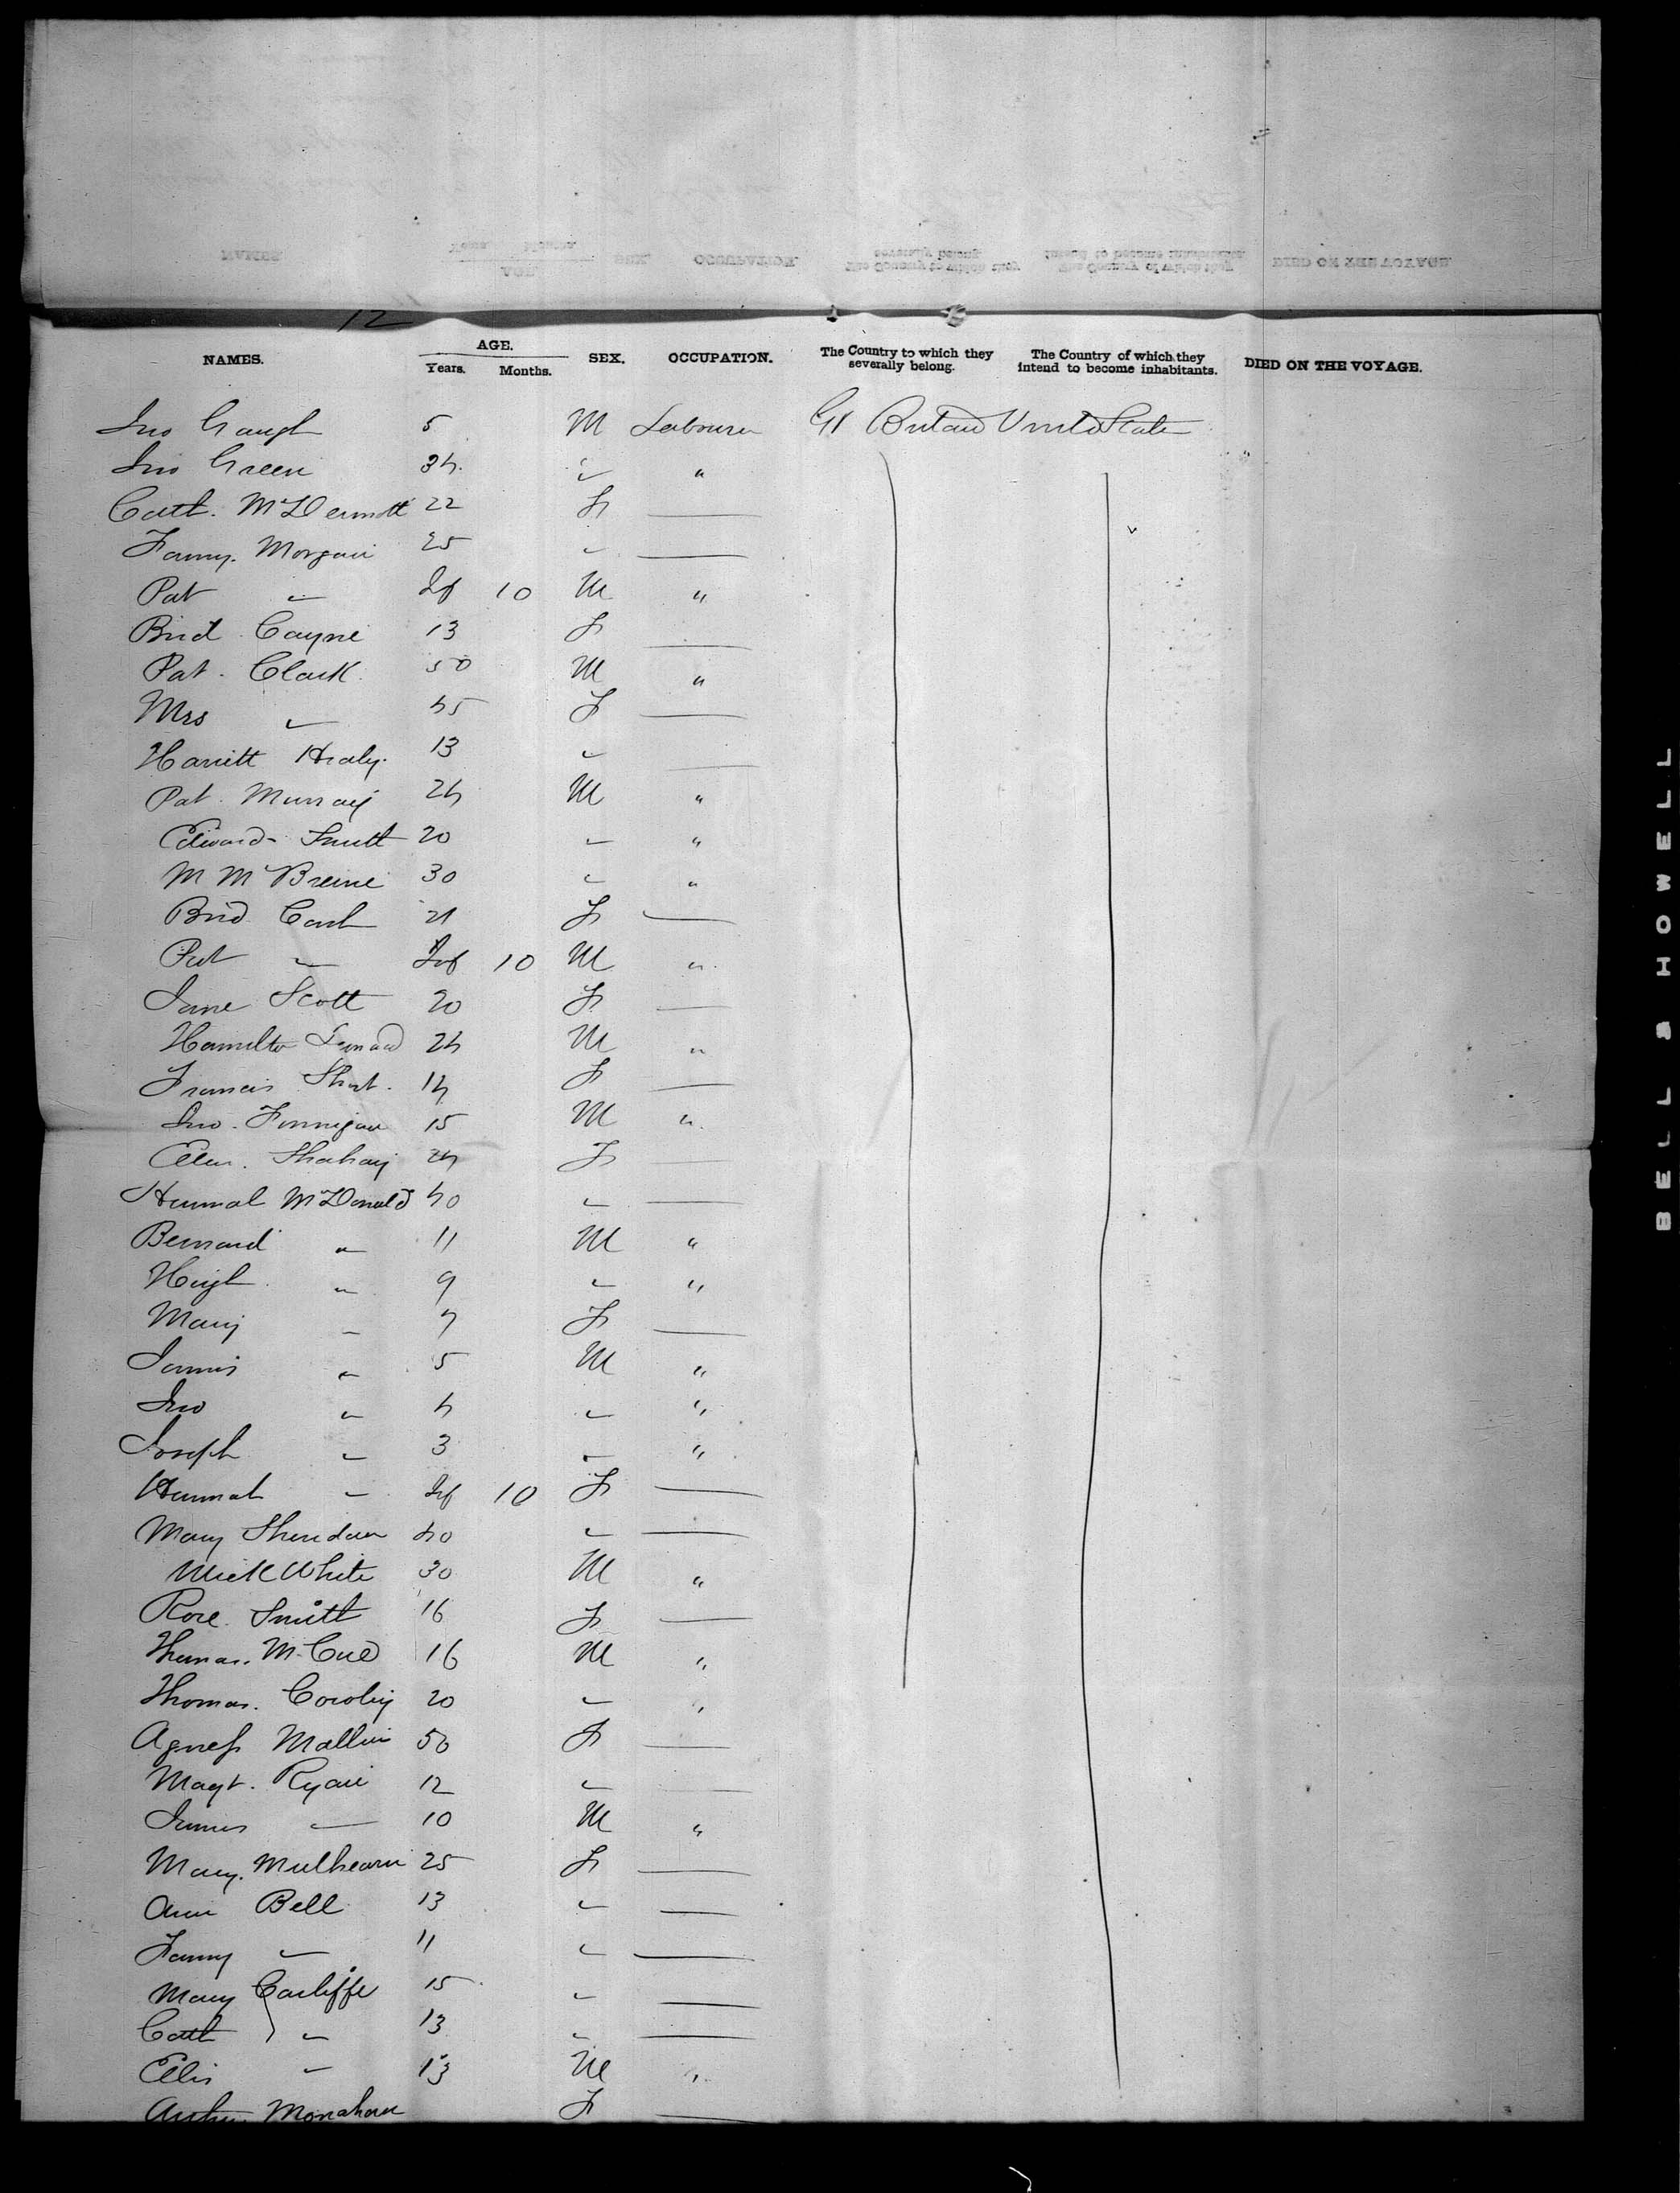 12
NAMES. AGE. Years. Months. SEX. OCCUPATION. The Country to which they severally belong. The Country of which they intend to become inhabitants. DIED ON THE VOYAGE.
Jno Gaugh 5 M Labourer Gt Britain United States
Jno Green 34 " "
Cath. McDermott 22 F —
Fanny. Morgan 25 " —
Pat " Inf 10 M "
Brid Coyne 13 F —
Pat. Clark 50 M "
Mrs " 45 F —
Harriett Healy. 13 " —
Pat. Murray 24 M "
Edward Smith 20 " "
M 30 " "
Brid 21 F —
Pat " Inf 10 M "
Jane Scott 20 F —
Hamilton 24 M "
Francis Short. 14 F —
Jno. Finnigan 15 M "
Ellen. 24 F —
Hannah McDonald 40 " —
Bernard " 11 M "
Hugh " 9 " "
Mary " 7 F —
James " 5 M "
Jno " 4 " "
Joseph " 3 " "
Hannah " Inf 10 F —
Mary Sheridan 40 " —
Mick White 30 M "
Rose. Smith 16 F —
Thomas. 16 M "
Thomas. 20 " "
Agness Mallin 50 F —
Magt. Ryan 12 " —
James " 10 M "
Mary. Mulhearn 25 F —
Ann Bell 13 " —
Fanny " 11 " —
Mary 15 " —
Cath " 13 " —
Ellis " 13 M "
Monahan F —
BELL & HOWELL